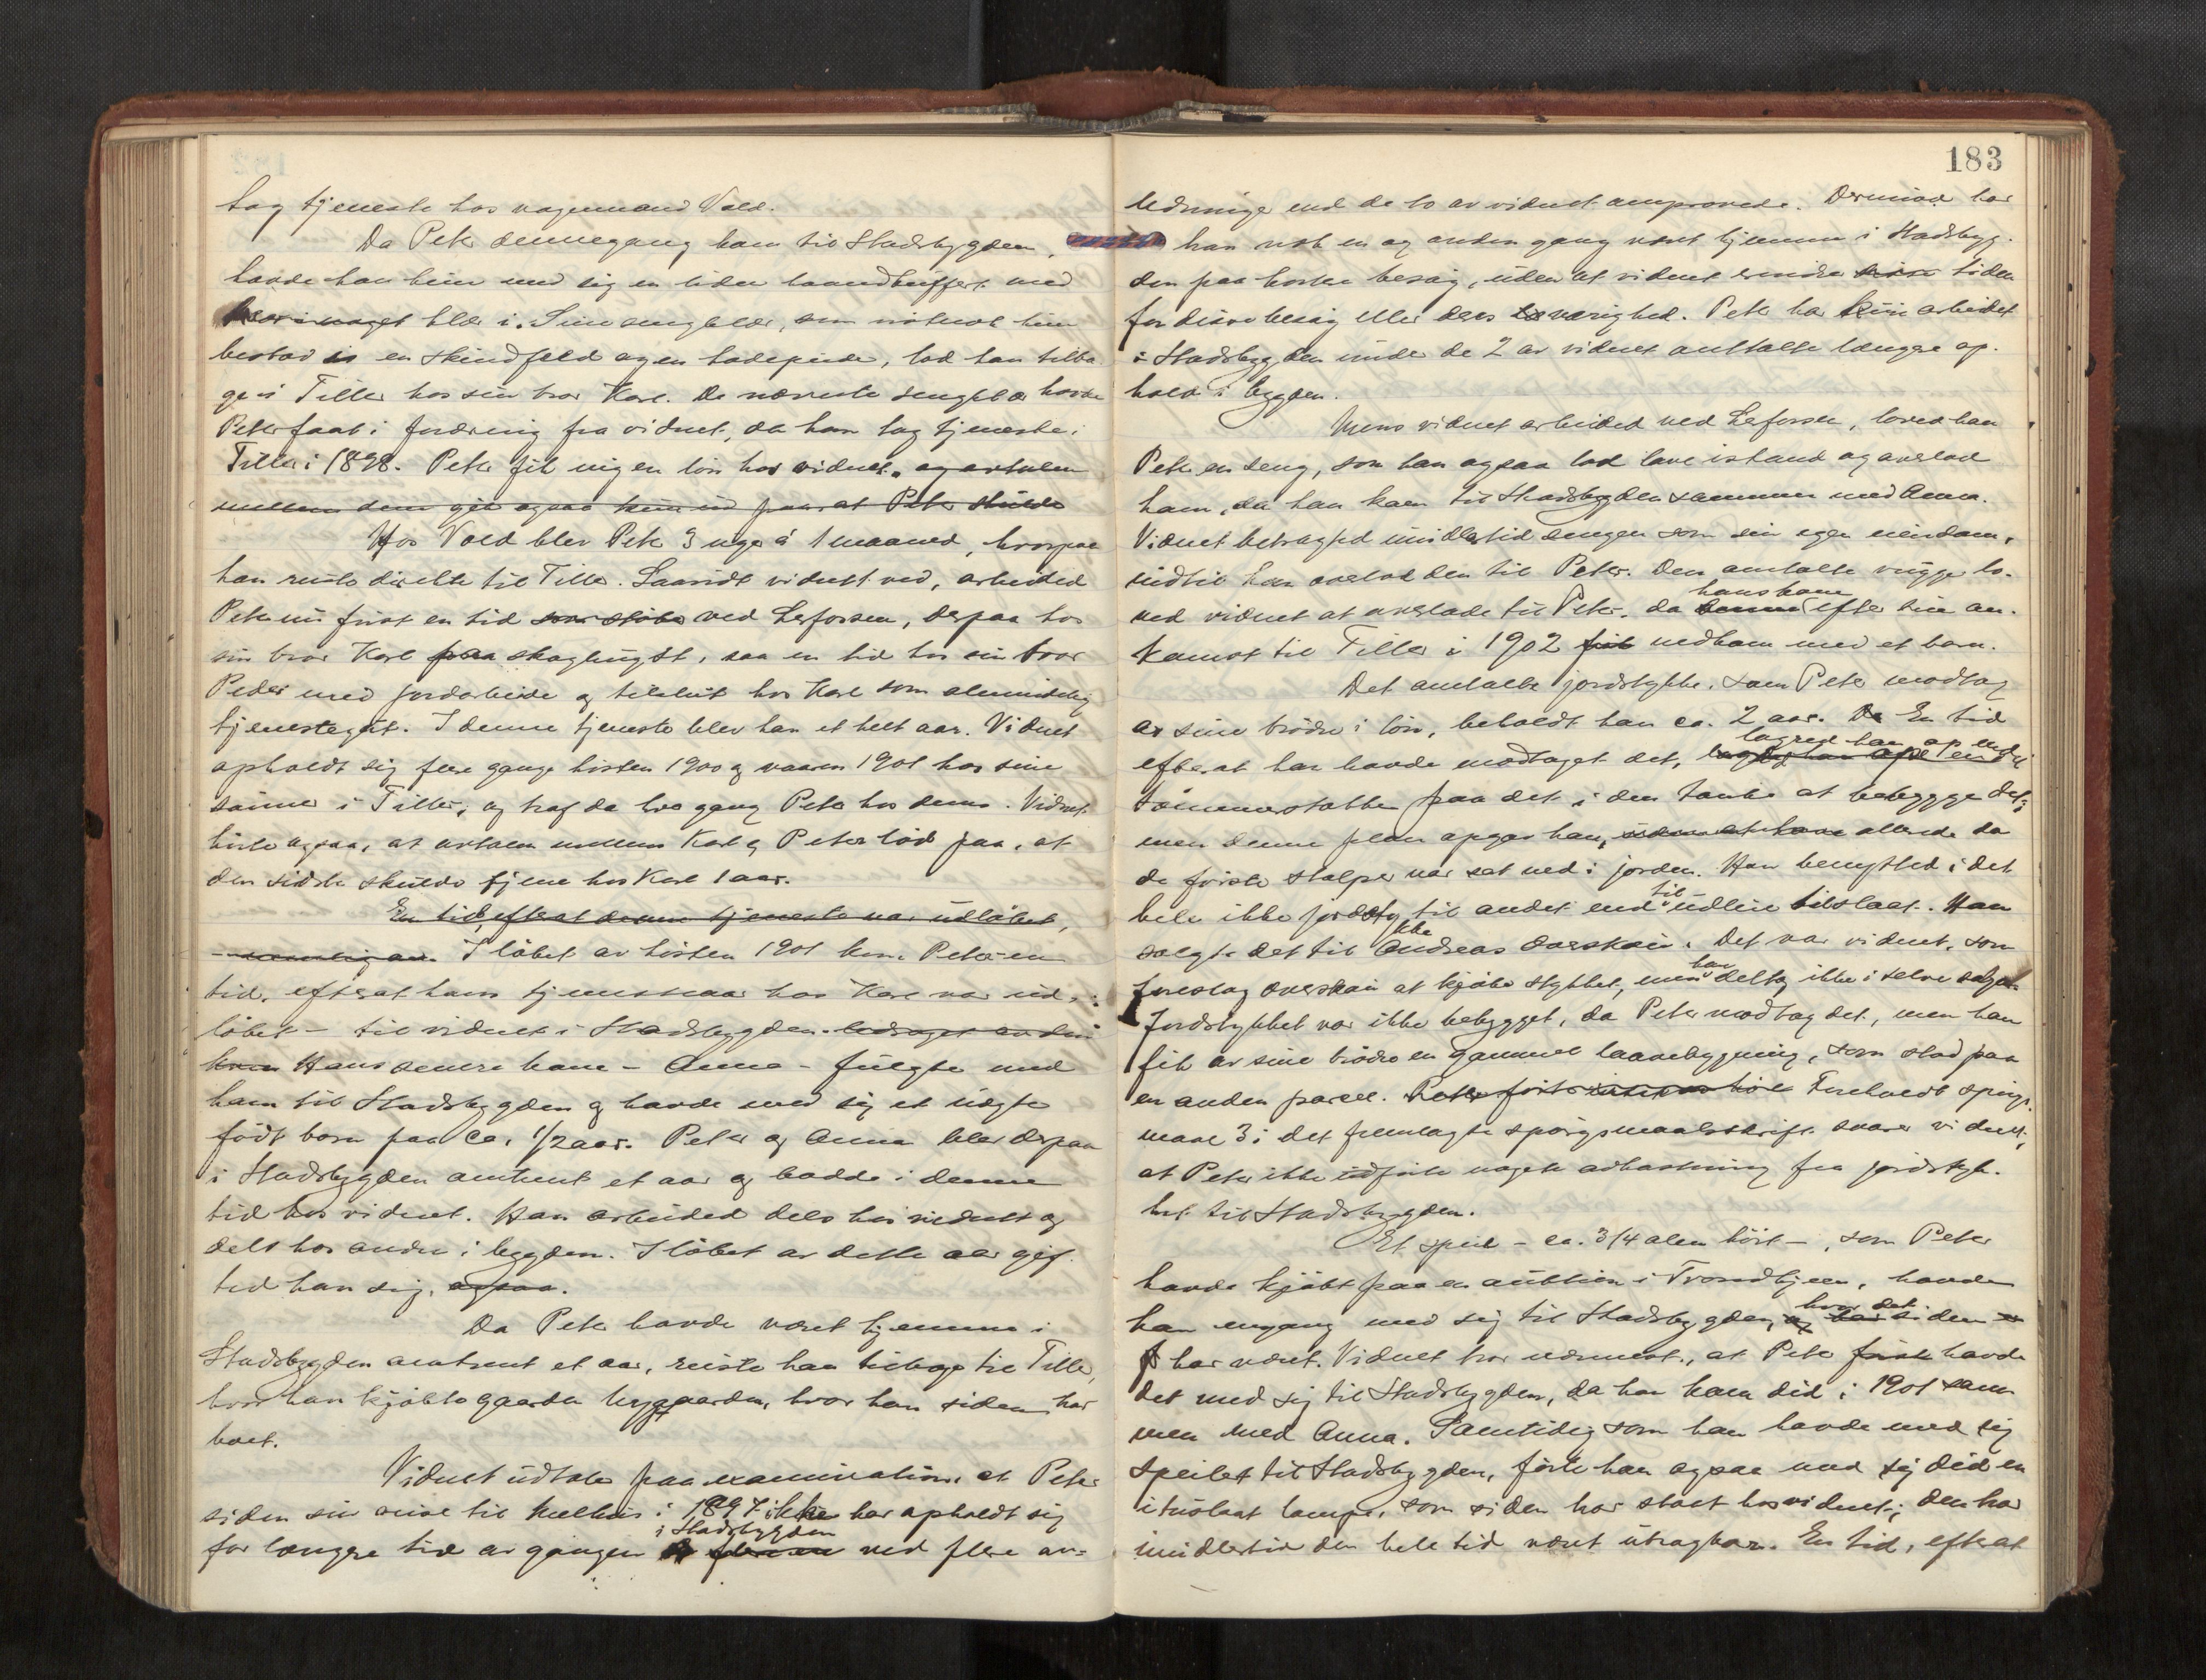 tog tjeneste hos vognmand Vold.
Da Peter dennegang kom til Stadsbygden,
havde han kun med sig en liden haandkuffert med
klær i. Sine sengklær, som nok kun
bestod i en skindfeld og en hodepude, lod han tilba-
ge i Tiller hos sin bror Karl. De nævnte sengklær havde
Peter faat i foræring fra vidnet, da han tog tjeneste i
Tiller i 1898. Peter fik ingen løn hos vidnet, og avtalen
mellem dem gik ogsaa kun ud paa at Peter skulde
Hos Vold blev Peter 3 uger à 1 maaned, hvorpaa
han reiste direkte til Tiller. Saavidt vidnet ved, arbeided
Peter nu først en tid ved Lerfossen, derpaa hos
sin bror Karl paa skoghugst, saa en tid hos sin bror
Peder med jordarbeide og tilslut hos Karl som almindelig
tjenestegut. I denne tjeneste blev han et helt aar. Vidnet
opholdt sig flere gange høsten 1900 og vaaren 1901 hos sine
sønner i Tiller, og traf da hver gang Peter hos dem. Vidnet
hørte ogsaa, at avtalen mellem Karl og Peter lød paa, at
den sidste skulde tjene hos Karl 1 aar.
En tid, efterat denne tjeneste var udløbet,
I løbet av høsten 1901 kom Peter – en
tid, efterat hans tjenesteaar hos Karl var ud-
løbet – til vidnet i Stadsbygden. ledsaget av sin
kone Hans senere kone – Anna – fulgte med
ham til Stadsbygden og havde med sig et uægte
født barn paa ca. 1/2 aar. Peter og Anna blev derpaa
i Stadsbygden omtrent et aar og bodde i denne
tid hos vidnet. Han arbeided dels hos vidnet og
dels hos andre i bygden. I løbet av dette aar gif-
ted han sig, ogsaa.
Da Peter havde været hjemme i
Stadsbygden omtrent et aar, reiste han tilbage til Tiller,
hvor han kjøbte gaarden Nygaarden, hvor han siden har
boet.
Vidnet udtaler paa examination, at Peter
siden sin reise til i 1897 ikke har opholdt sig
i Stadsbygden
for længre tid av gangen ved flere an-
183
ledninge end de to av vidnet omprovede. Derimod har
han nok en og anden gang været hjemme i Stadsbyg-
den paa korte besøg, uden at vidnet erindre tiden
for disse besøg eller deres varighed. Peter har kun arbeidet
i Stadsbygden under de 2 av vidnet omtalte længre op-
hold i bygden.
Mens vidnet arbeided ved Lerfossen, loved han
Peter en seng, som han ogsaa lod lave istand og overlod
ham, da han kom til Stadsbygden sammen med Anna.
Vidnet betragted imidlertid sengen som sin egen eiendom,
indtil han overlod den til Peter. Den omtalte vugge lo-
hans kone
ved vidnet at overlade til Peter, da denne efter sin an-
komst til Tiller i 1902 fik nedkom med et barn.
Det omtalte jordstykke, som Peter modtog
av sine brødre i løn, beholdt han ca. 2 aar. En tid
lagred han op endel
efterat han havde modtaget det,
tømmerstokker paa det i den tanke at bebygge det;
men denne plan opgav han, allerede da
de første stolper var sat ned i jorden. Han benytted i det
til
hele ikke jordsty til andet end udleie tilslaat. Han
kke
solgte det til Andreas Overskei. Det var vidnet, som
han
foreslog Overskei at kjøbe stykket, men deltog ikke i selve salget.
Jordstykket var ikke bebygget, da Peter modtog det, men han
fik av sine brødre en gammel laavebygning, som stod paa
en anden parcel. Foreholdt spørgs-
maal 3 i det fremlagte spørgsmaalsskrift svarer vidnet,
at Peter ikke udførte nogen avkastning fra jordstyk-
ket til Stadsbygden.
Et speil – ca. 3/4 alen høit –, som Peter
havde kjøbt paa en auktion i Trondhjem, havde
hvor det
han engang med sig til Stadsbygden, siden
har været. Vidnet tror nærmest, at Peter havde
det med sig til Stadsbygden, da han kom did i 1901 sam-
men med Anna. Samtidig som han havde med sig
speilet til Stadsbygden, førte han ogsaa med sig did en
ituslaat lampe, som siden har staat hos vidnet; den har
imidlertid den hele tid været ubrugbar. En tid, efterat